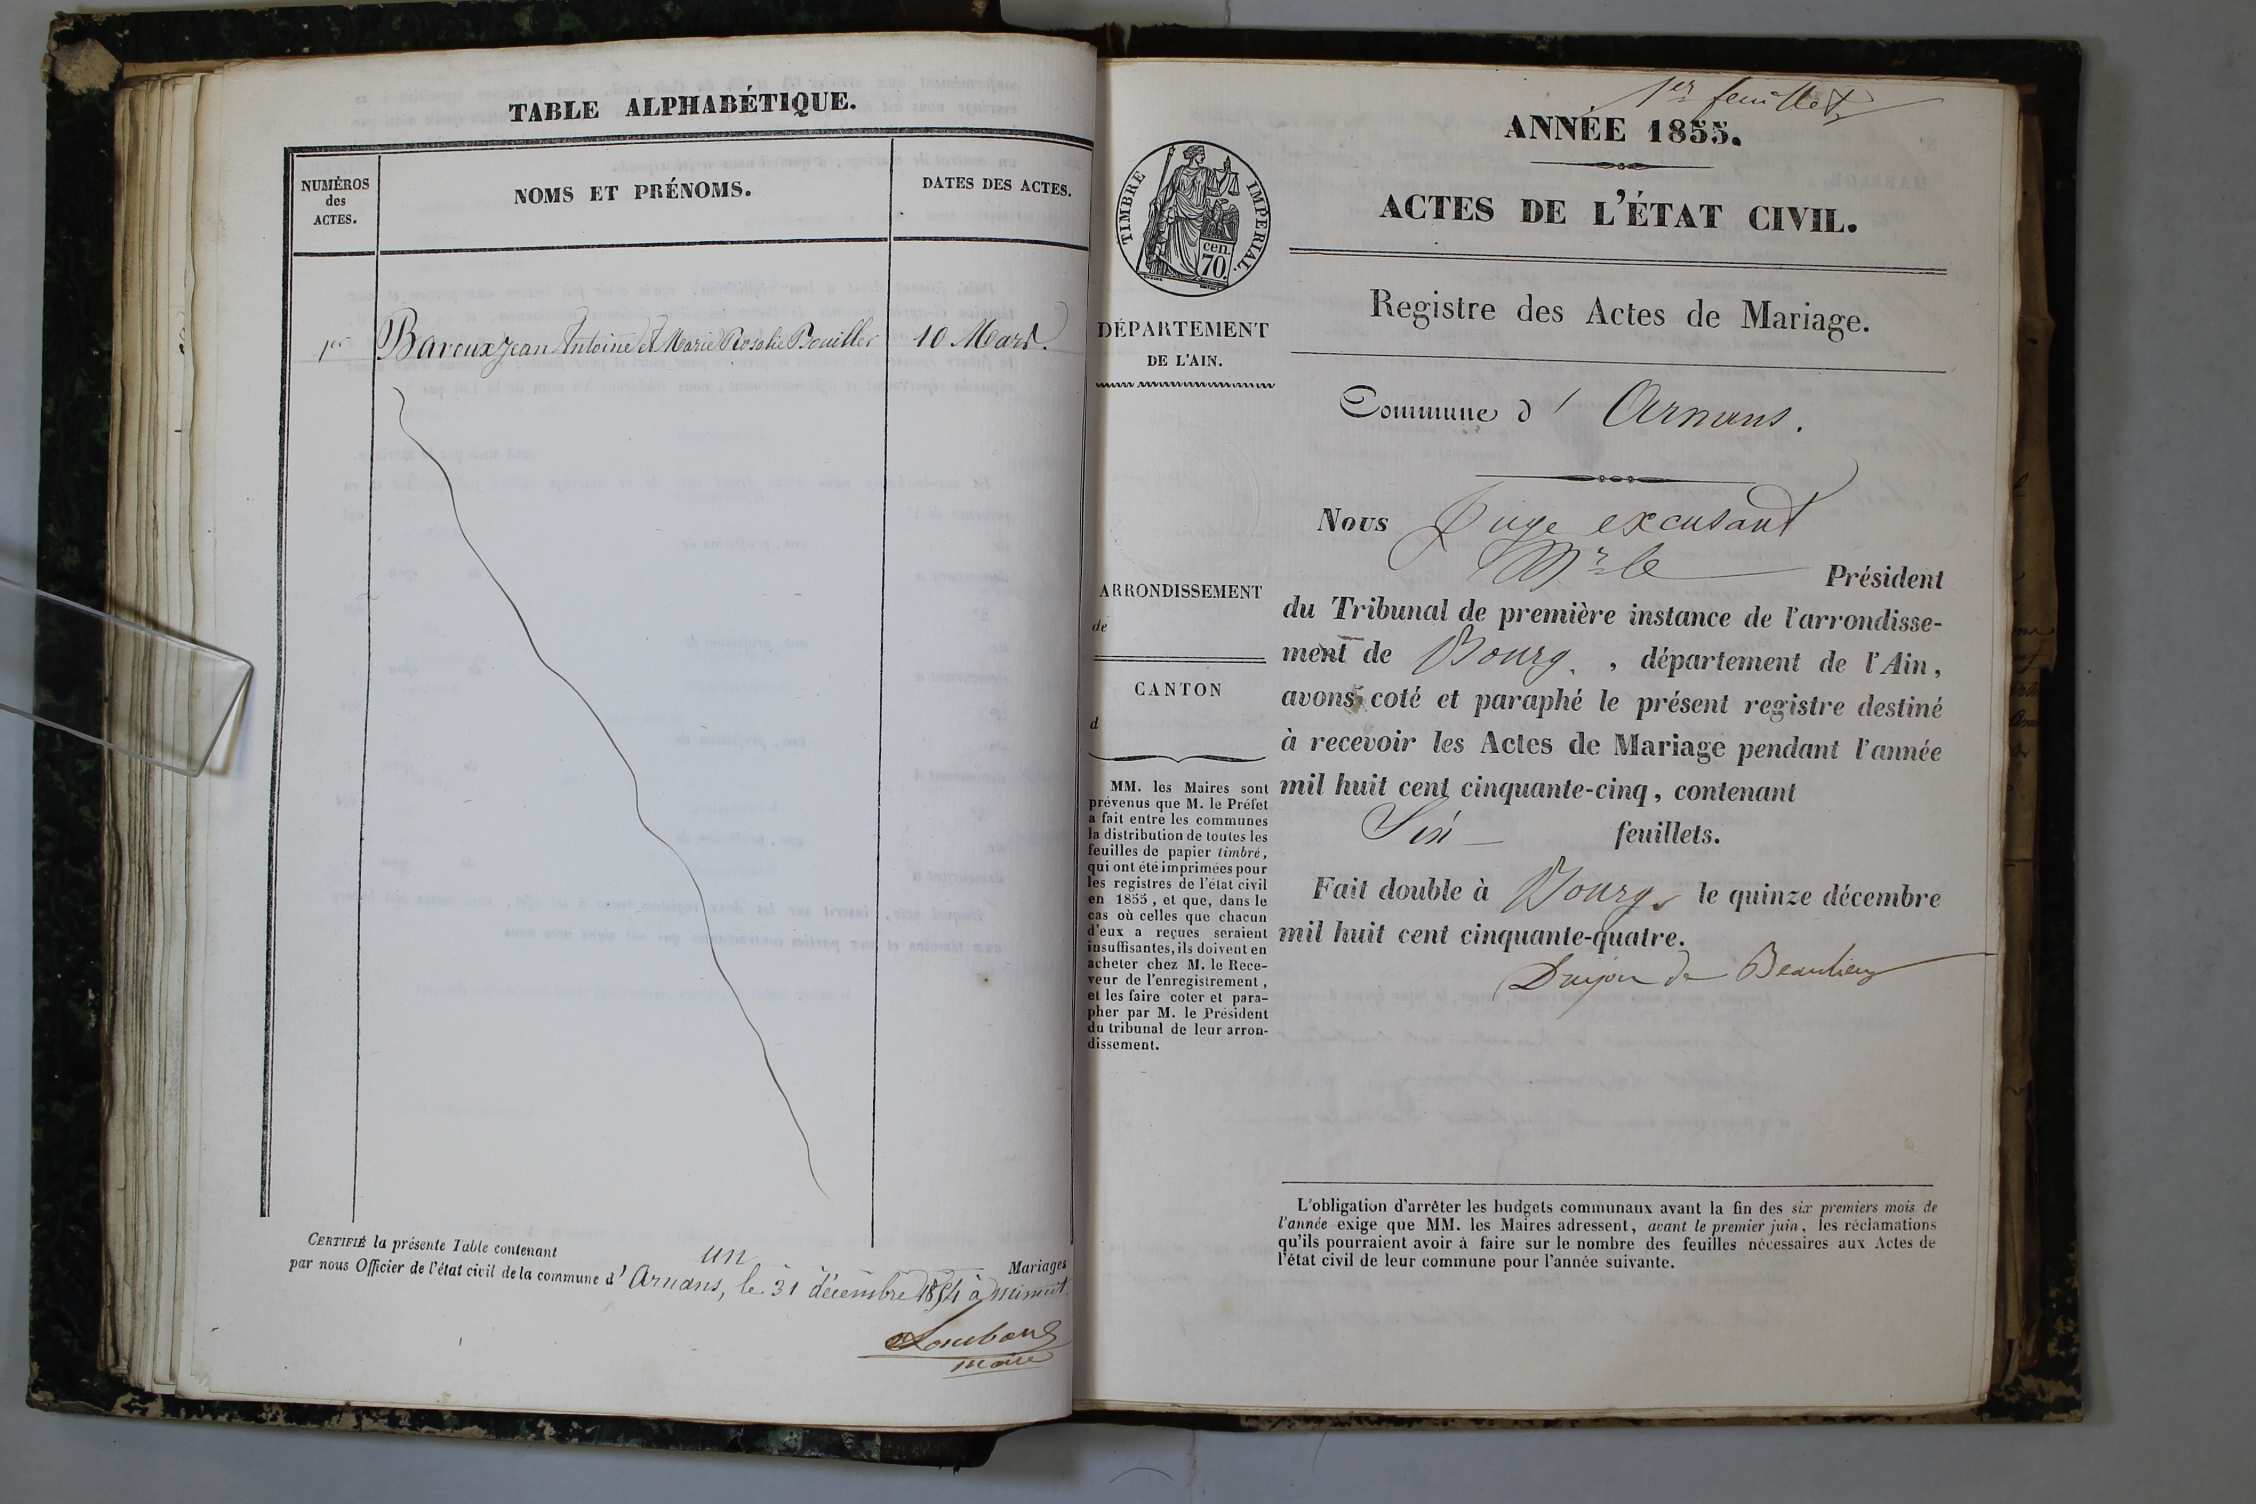 TABLE ALPHABÉTIQUE.
NUMÉROS
des
ACTES.
NOMS ET PRÉNOMS.
DATES DES ACTES.
1er Baroux Jean Antoine et Marie Rosalie Bouiller 10 Mars.
CERTIFIÉ la présente Table contenant un Mariages
par nous Officier de l'état civil de la commune d' Arnans, le 31 décembre 1854 à minuit.
maire
1er feuillet
ANNÉE 1855.
ACTES DE L'ÉTAT CIVIL.
TIMBRE IMPERIAL.
cen.
70.
Registre des Actes de Mariage.
DÉPARTEMENT
DE L'AIN.
Commune d' Arnans.
Nous Juge excusant
Mr le Président
du Tribunal de première instance de l'arrondisse-
ment de Bourg, département de l'Ain,
avons coté et paraphé le présent registre destiné
à recevoir les Actes de Mariage pendant l'année
mil huit cent cinquante-cinq, contenant
Six feuillets.
Fait double à Bourg, le quinze décembre
mil huit cent cinquante-quatre.
de Beaulieu
ARRONDISSEMENT
de
CANTON
d
MM. les Maires sont
prévenus que M. le Préfet
a fait entre les communes
la distribution de toutes les
feuilles de papier timbré,
qui ont été imprimées pour
les registres de l'état civil
en 1855, et que, dans le
cas où celles que chacun
d'eux a reçues seraient
insuffisantes, ils doivent en
acheter chez M. le Rece-
veur de l'enregistrement,
et les faire coter et para-
pher par M. le Président
du tribunal de leur arron-
dissement.
L'obligation d'arrêter les budgets communaux avant la fin des six premiers mois de
l'année exige que MM. les Maires adressent, avant le premier juin, les réclamations
qu'ils pourraient avoir à faire sur le nombre des feuilles nécessaires aux Actes de
l'état civil de leur commune pour l'année suivante.